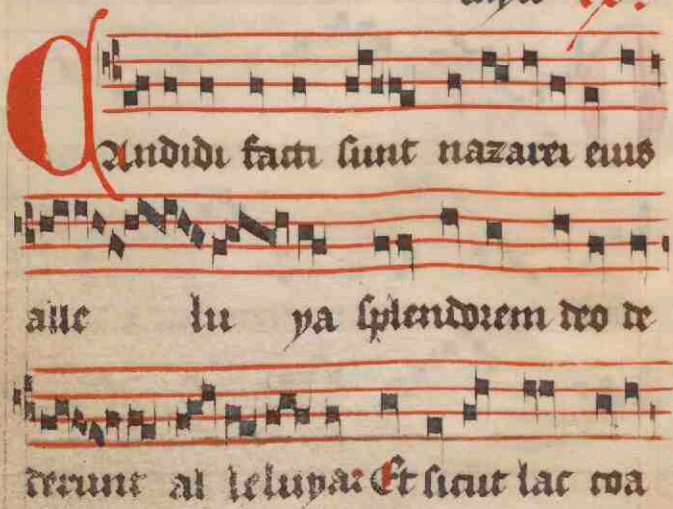 CAndidi facti sunt nazarei eius
alle lu ya splendorem deo de
derunt al leluya: Et sicut lac coa